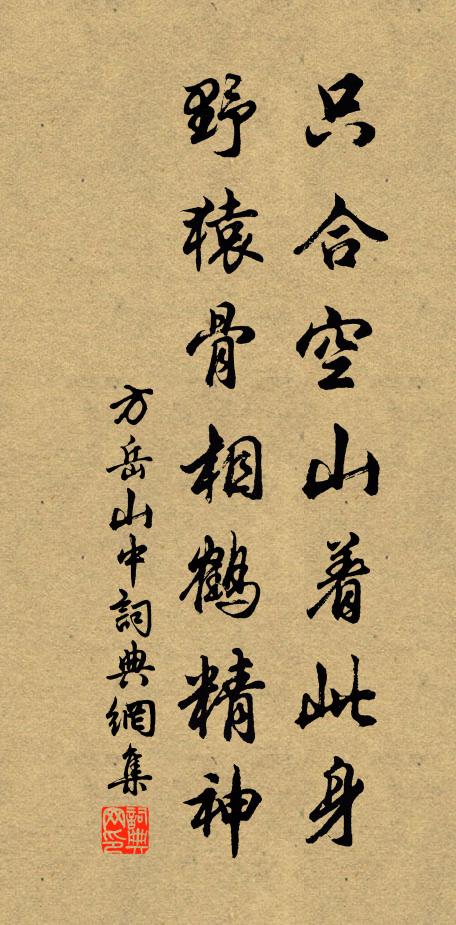 只合空山着此身
野猿骨相鶴精神
方岳山中詞典網集
詞典网印